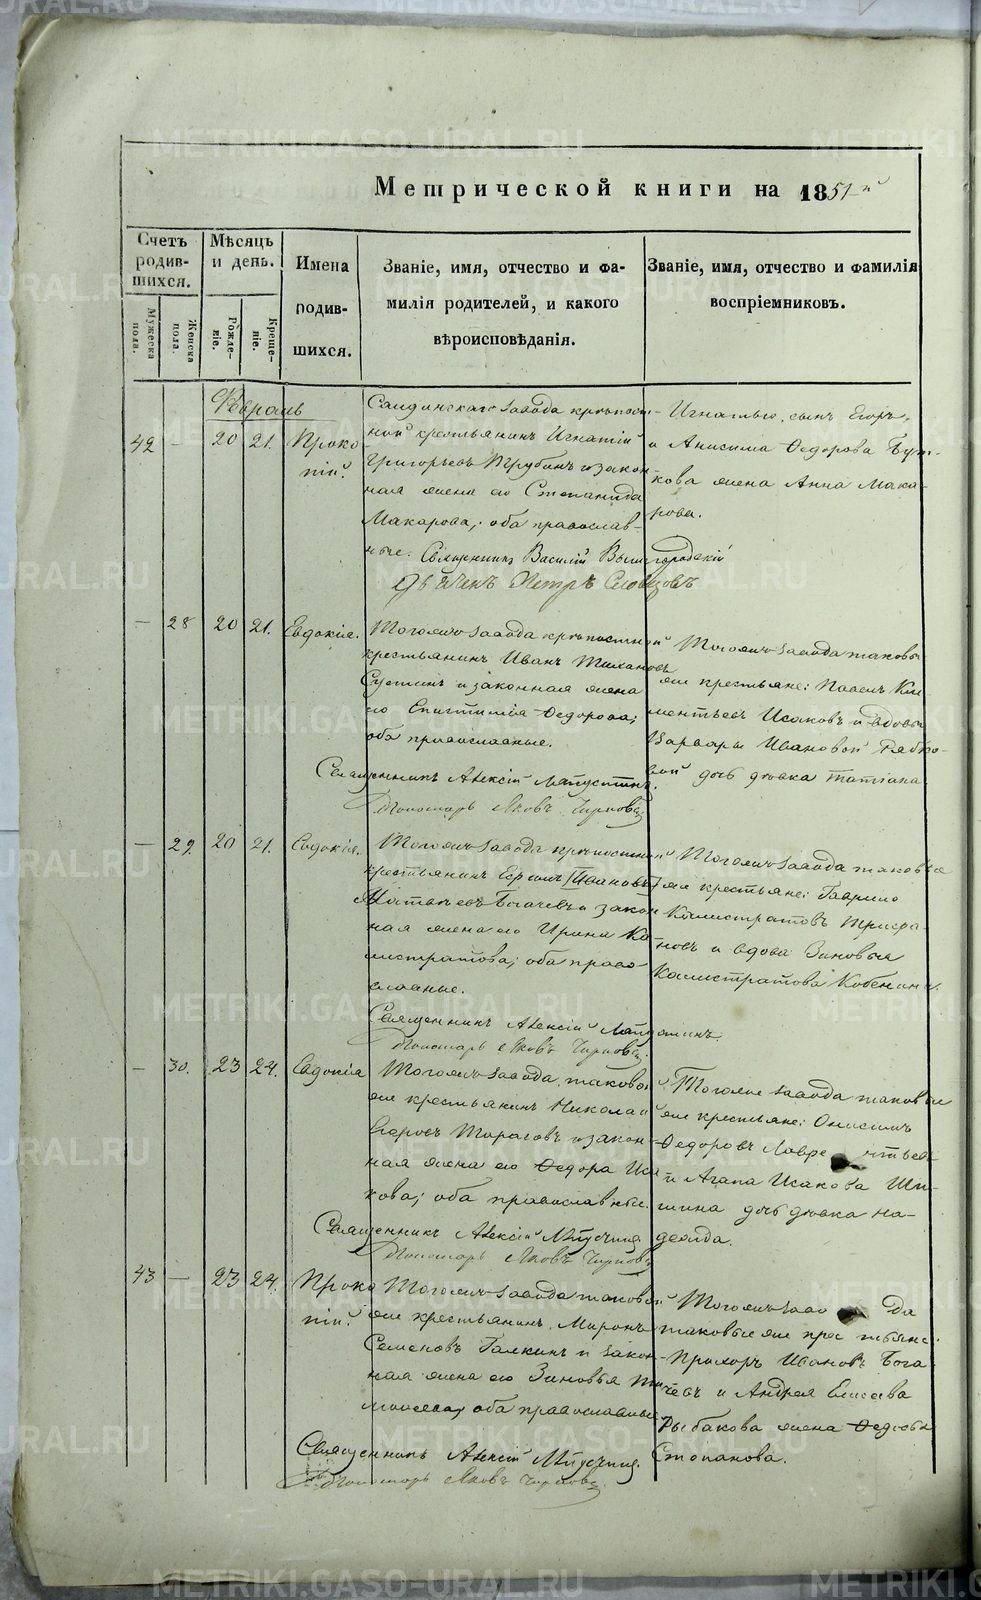 Метрической книги на 1851й
Счетъ родив-шихся.
Мѣсяцъ и день.
Имена родив-шихся.
Званіе, имя, отчество и фа-
милія родителей, и какого
вѣроисповѣданія.
Званіе, имя, отчество и фамилія
воспріемниковъ.
Мужеска пола.
Женска пола.
Рожде-ніе.
Креще-ніе.
Февраль
42 — 20 21. Проко-
пій.
завода крѣпост-
ной крестьянинъ Игнатій
Григорьевъ Трубинъ и закон-
ная жена его Степанида
Макарова, оба православ-
ные. Священникъ Василій Вышегородскій
Дьячекъ Петръ Словцовъ
Игнатью, сынъ Егоръ,
и Анисима Ѳедорова
жена Анна Мака-
рова.
— 28 20 21. Евдокія.
Тогожъ завода крѣпостной
крестьянинъ Иванъ
и законная жена
его Ѳедорова;
оба православные.
Священникъ Алексій Лапустинъ.
Пономарь Яковъ
Тогожъ завода таковы
же крестьяне: Павелъ Кли-
ментьевъ Исаковъ и вдовы
Варвары Ивановой Рябко-
вой дочь дѣвка Татіана
— 29. 20 21. Евдокія.
Тогожъ завода крѣпостной
крестьянинъ Ивановъ
Богачевъ и закон-
ная жена его Ирина Ка-
листратова; оба право-
славные.
Священникъ Алексій Лапустинъ.
Пономарь Яковъ
Тогожъ завода таковые
же крестьяне: Гаврило
Калистратовъ
и вдова Зиновья
Калистратова
— 30. 23 24. Евдокія
Тогожъ завода таковой
же крестьянинъ Николай
Егоровъ Тарасовъ и закон-
ная жена его Ѳедора Иса-
кова; оба православные.
Священникъ Алексій Лапустинъ
Пономарь Яковъ
Тогоже завода таковые
же крестьяне: Онисимъ
Ѳедоровъ Лаврентьевъ
и Агапа Исакова Ши-
шина дочь дѣвка На-
дежда.
43 — 23 24. Проко-
пій.
Тогожъ завода таковой
же крестьянинъ Миронъ
Семеновъ Галкинъ и закон-
ная жена его Зиновья Ти-
моѳеева, оба православные
Священникъ Алексій Лапустинъ.
Пономарь Яковъ
Тогожъ завода
таковые же крестьяне:
Прохоръ Ивановъ Бога-
чевъ и Андрея Елисѣева
Рыбакова жена Ѳедосья
Степанова.
METRIKI.GASO-URAL.RU